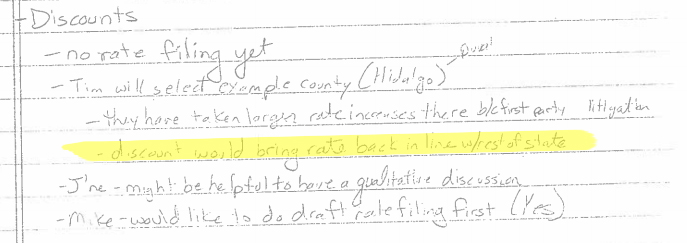 - Discounts
- no rate filing yet
- Tim will select example county (Hidalgo)
- they have taken larger rate increases there b/c first party litigation
- discount would bring rate back in line w/rest of state
- J'ne - might be helpful to have a qualitative discussion
- Mike - would like to do draft rate filing first (Yes)